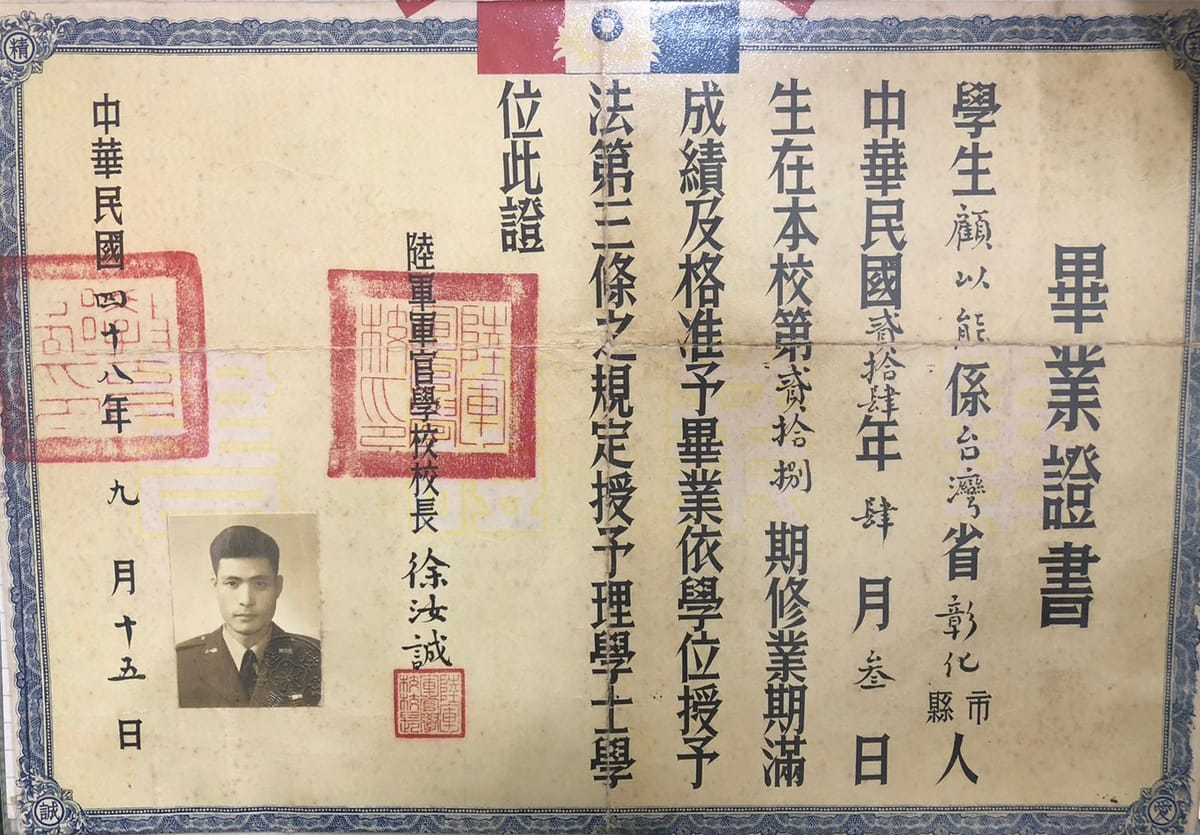 畢業證書
學生顧以能係台灣省彰化市縣人
中華民國貳拾肆年肆月叁日
生在本校第貳拾捌期修業期滿
成績及格准予畢業依學位授予
法第三條之規定授予理學士學
位此證
陸軍軍官學校校長徐汝誠
陸軍軍官學校校長
中華民國四十八年九月十五日
精
誠
愛